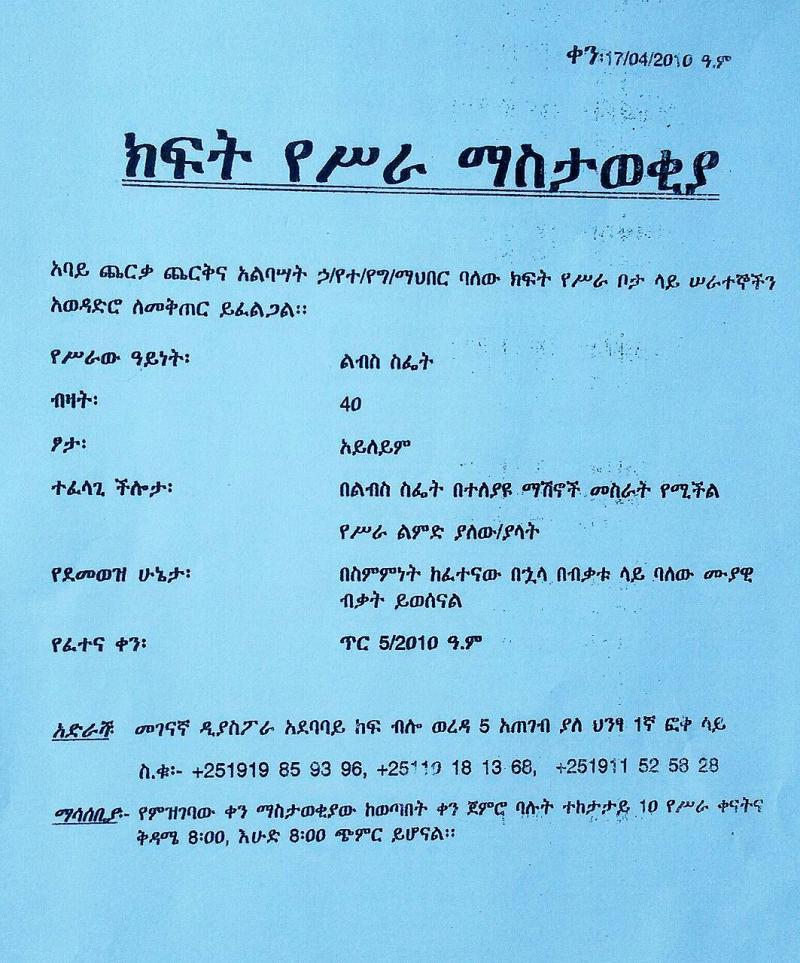 ቀን፡17/04/2010 ዓ.ም
ክፍት የሥራ ማስታወቂያ
አባይ ጨርቃ ጨርቅና አልባሣት ኃ/የተ/የግ/ማህበር ባለው ክፍት የሥራ ቦታ ላይ ሠራተኞችን
አወዳድሮ ለመቅጠር ይፈልጋል፡፡
የሥራው ዓይነት፡ ልብስ ስፌት
ብዛት፡ 40
ፆታ፡ አይለይም
ተፈላጊ ችሎታ፡ በልብስ ስፌት በተለያዩ ማሽኖች መስራት የሚችል
የሥራ ልምድ ያለው/ያላት
የደመወዝ ሁኔታ፡ በስምምነት ከፈተናው በኋላ በብቃቱ ላይ ባለው ሙያዊ
ብቃት ይወሰናል
የፈተና ቀን፡ ጥር 5/2010 ዓ.ም
አድራሻ መገናኛ ዲያስፖራ አደባባይ ከፍ ብሎ ወረዳ 5 አጠገብ ያለ ህንፃ 1ኛ ፎቅ ላይ
ስ.ቁ፡- +251919 85 93 96, 18 13 68, +251911 52 58 28
ማሳሰቢያ፡- የምዝገባው ቀን ማስታወቂያው ከወጣበት ቀን ጀምሮ ባሉት ተከታታይ 10 የሥራ ቀናትና
ቅዳሜ 8፡00, እሁድ 8፡00 ጭምር ይሆናል፡፡